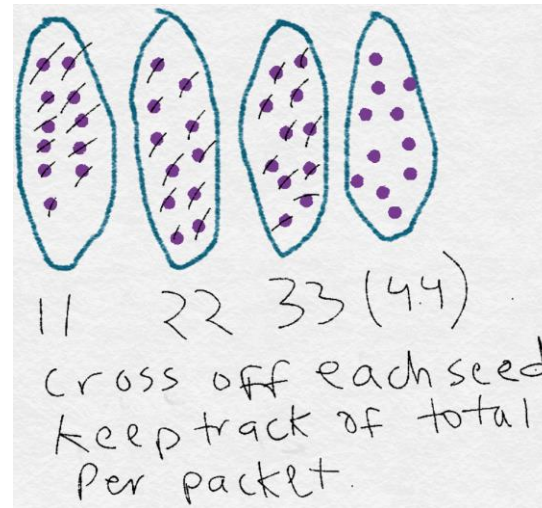 11 22 33 (44)
cross off each seed
keep track of total
Per packet.